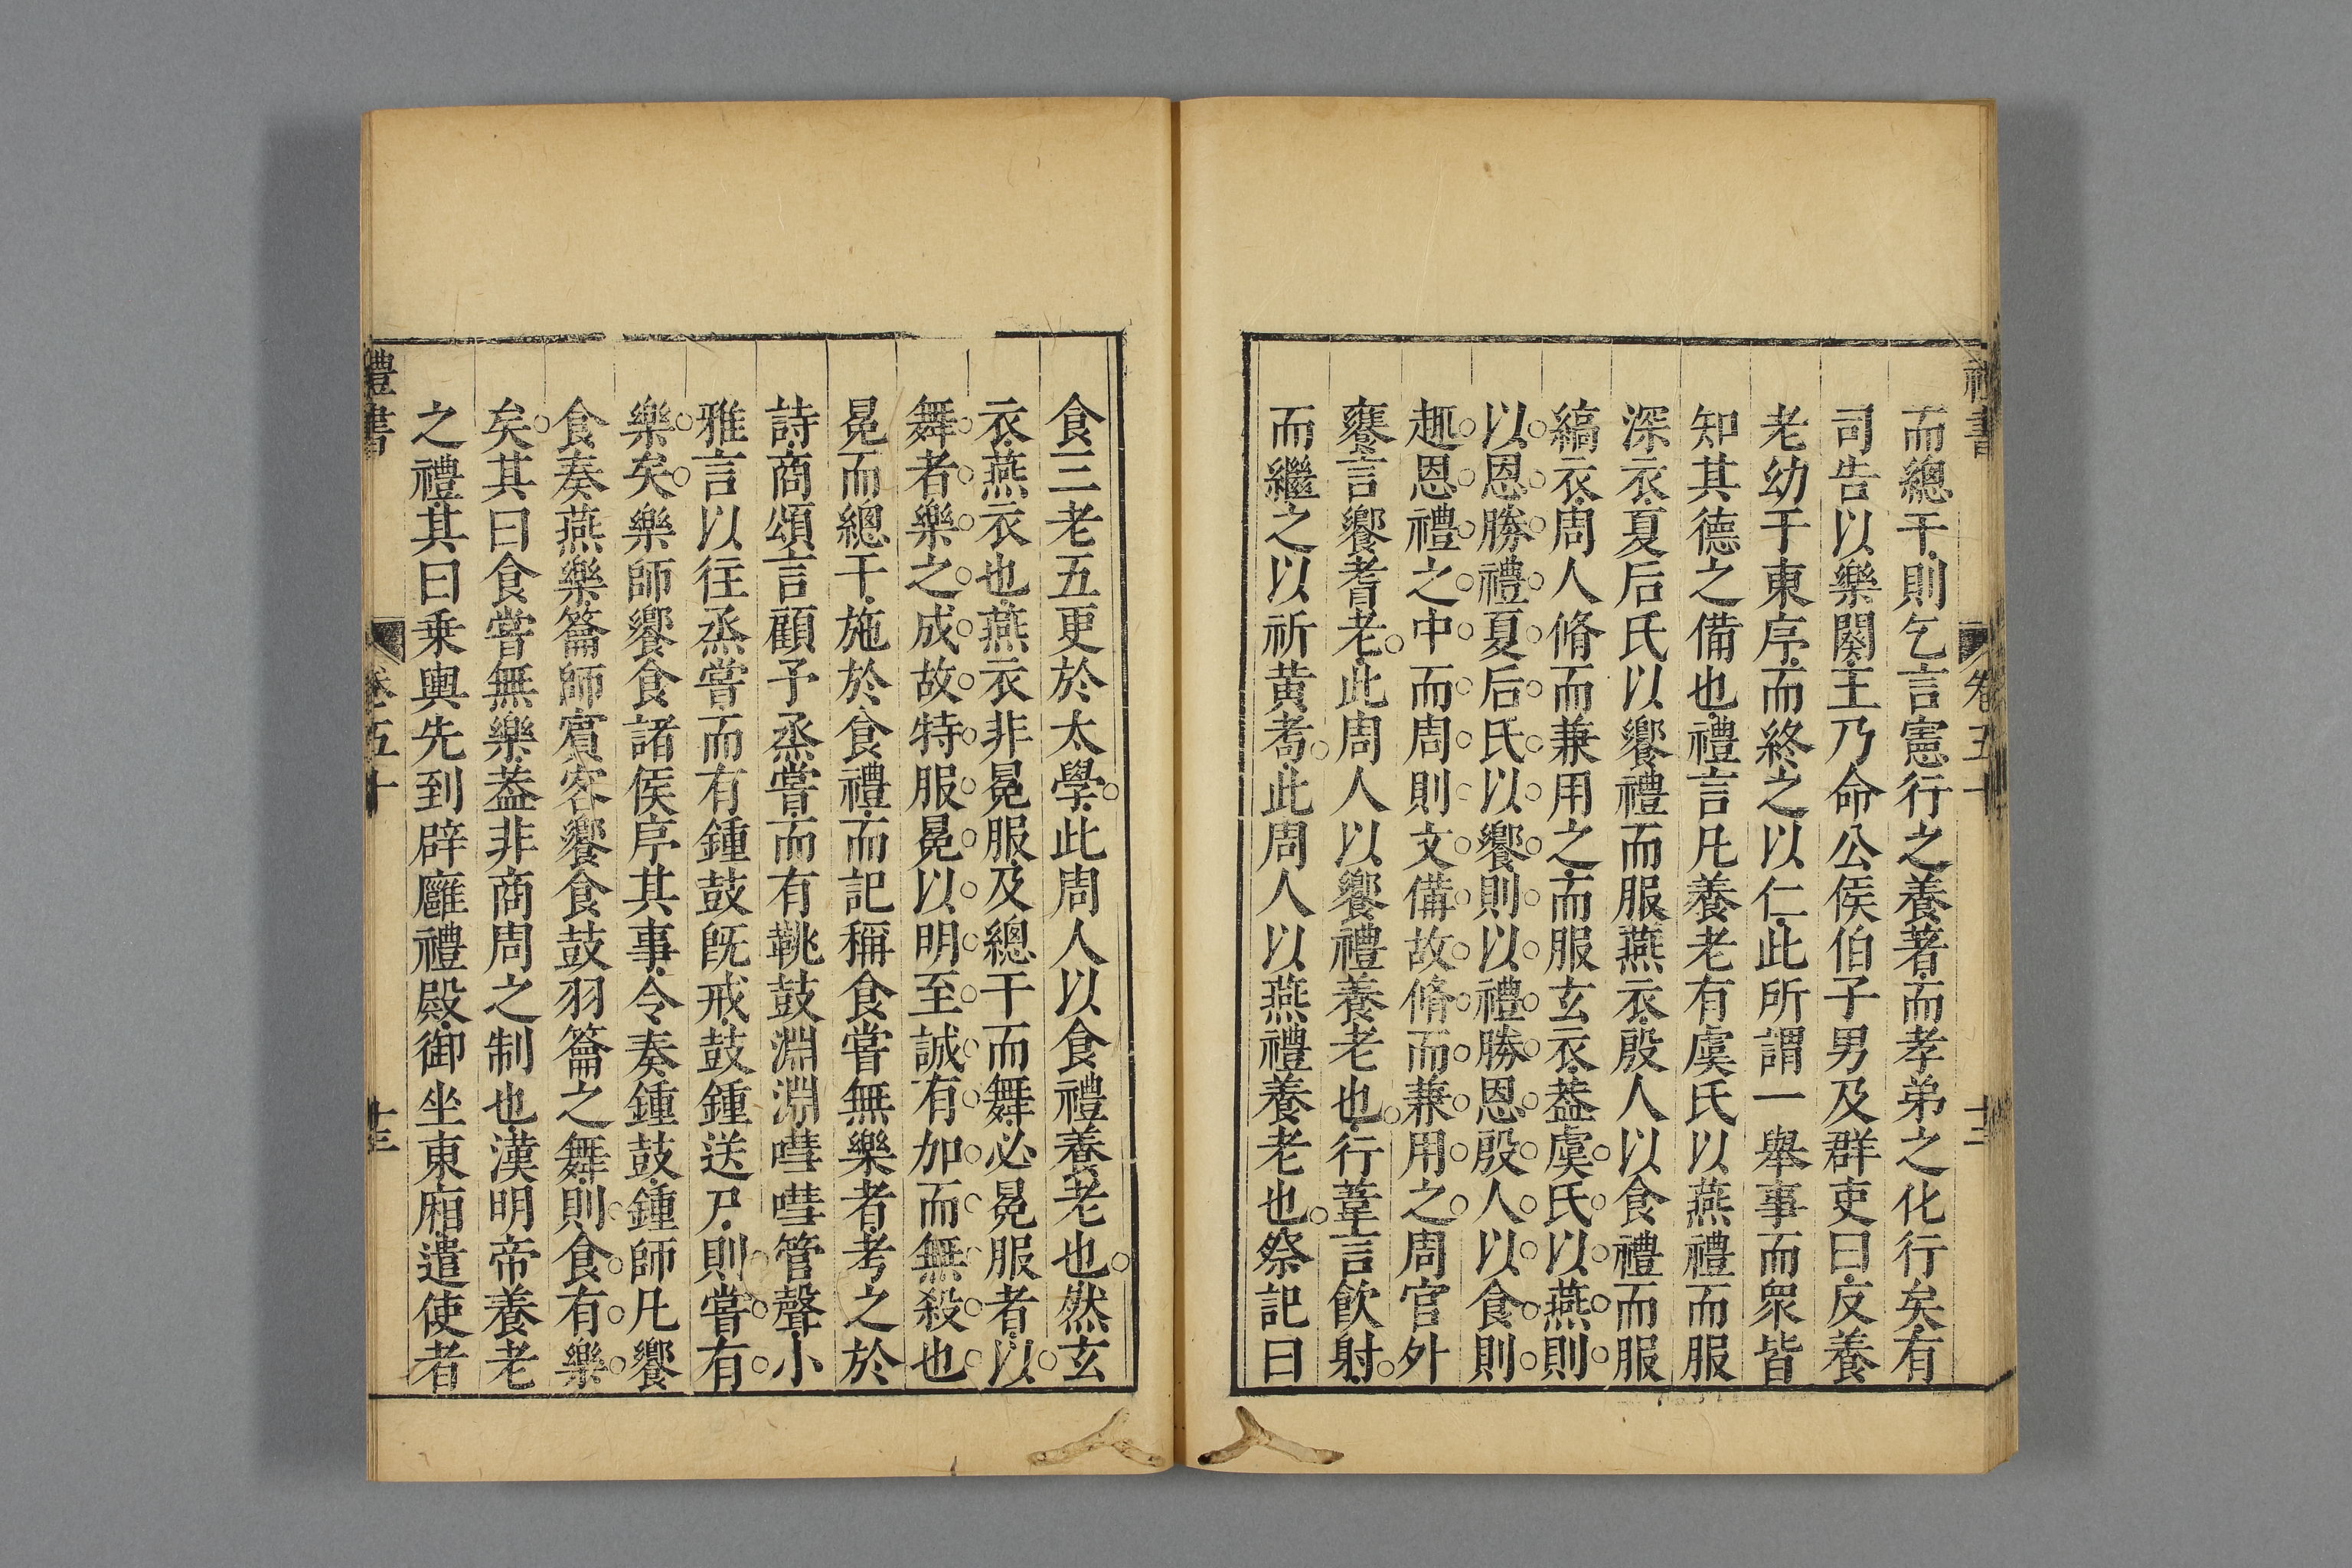 禮書
卷五十
十三
而總干則乞言憲行之養著而孝弟之化行矣有
司告以樂闋王乃命公侯伯子男及群吏曰反養
老幼于東序而終之以仁此所謂一舉事而眾皆
知其德之備也禮言凡養老有虞氏以燕禮而服
深衣夏后氏以饗禮而服燕衣殷人以食禮而服
縞衣周人脩而兼用之而服玄衣葢虞氏以燕則
以恩勝禮夏后氏以饗則以禮勝恩殷人以食則
趣恩禮之中而周則文備故脩而兼用之周官外
饔言饗耆老此周人以饗禮養老也行葦言飲射
而繼之以祈黃耇此周人以燕禮養老也祭記曰
食三老五更於太學此周人以食禮養老也然玄
衣燕衣也燕衣非冕服及總干而舞必冕服者以
舞者樂之成故特服冕以明至誠有加而無殺也
冕而總干施於食禮而記稱食嘗無樂者考之於
詩商頌言顧予烝嘗而有鞉鼓淵淵嘒嘒管聲小
雅言以往烝嘗而有鍾鼓旣戒鼓鍾送尸則嘗有
樂矣樂師饗食諸侯序其事令奏鍾鼓鍾師凡饗
食奏燕樂籥師賓客饗食鼓羽籥之舞則食有樂
矣其曰食嘗無樂葢非商周之制也漢明帝養老
之禮其曰乗輿先到辟廱禮殿御坐東廂遣使者
禮書
卷五十
十三